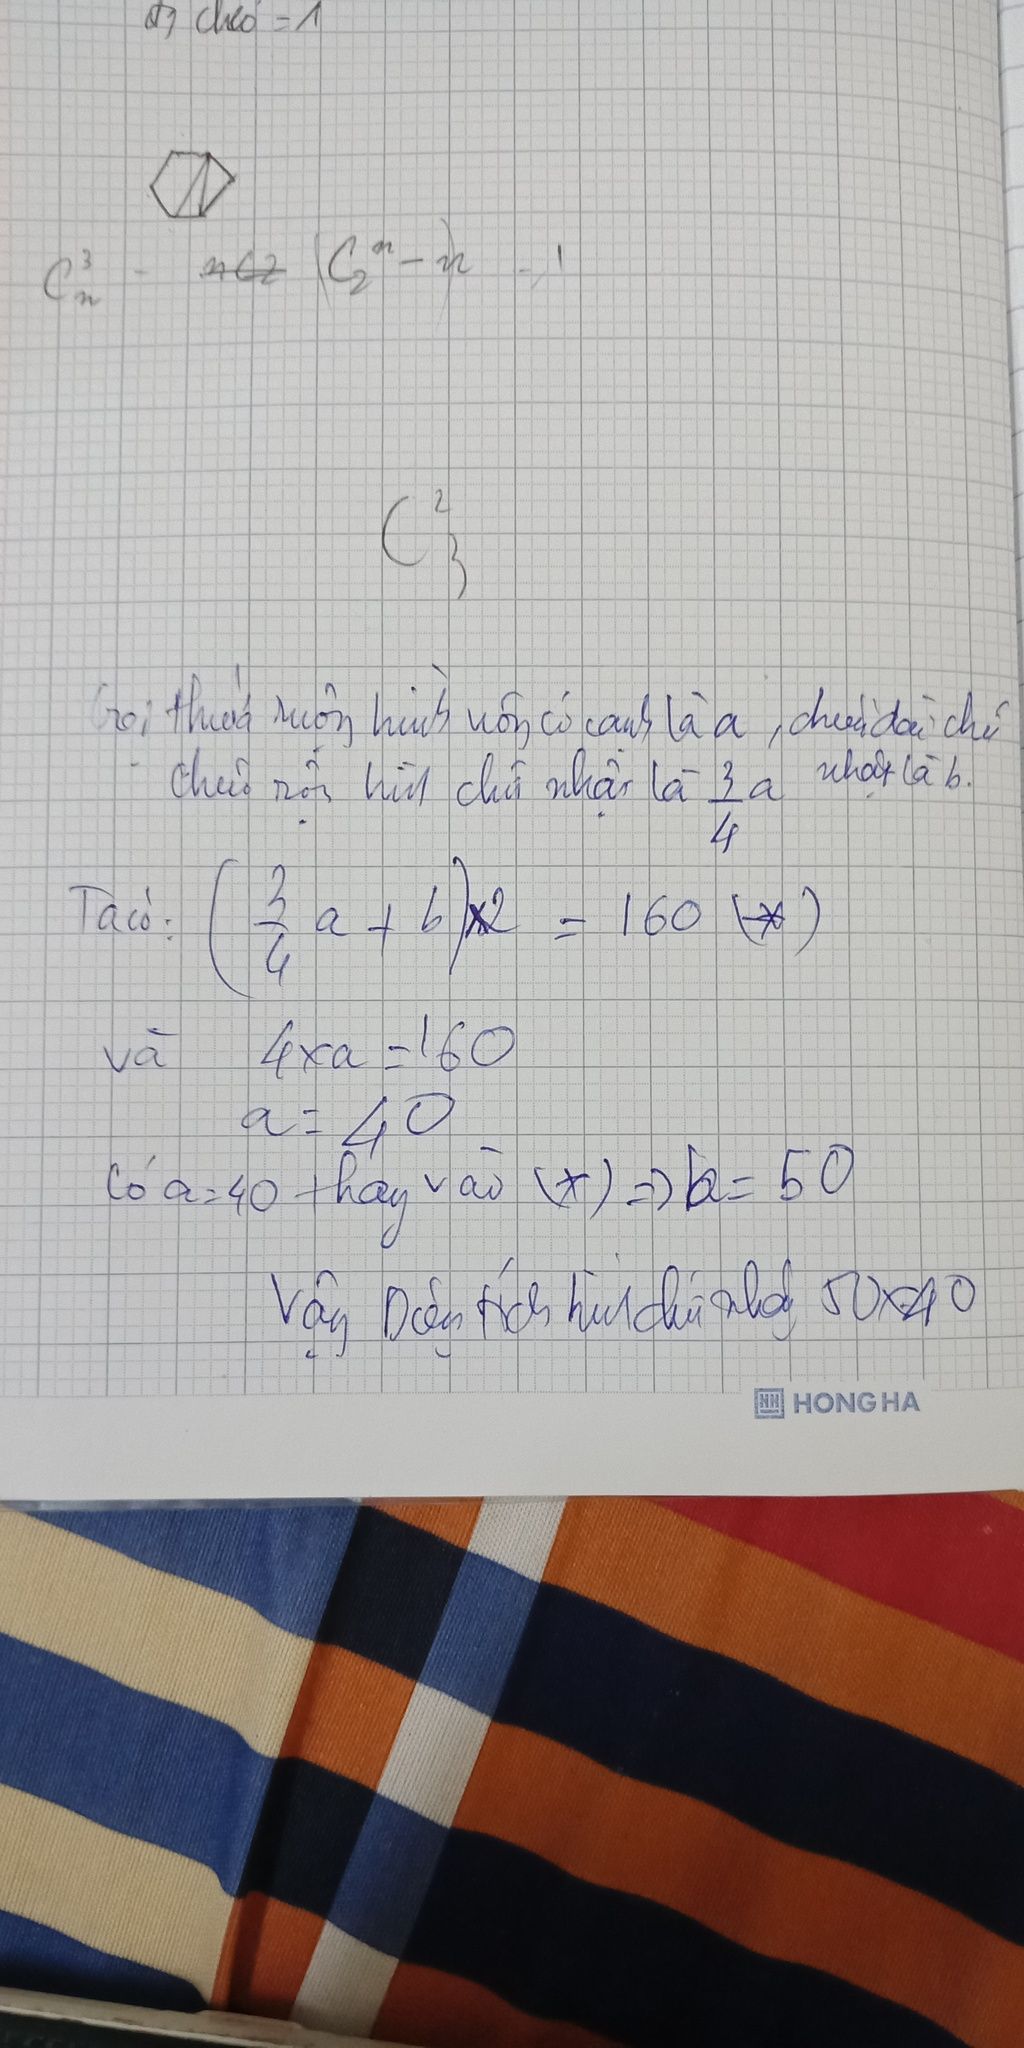 chéo = 1
C³ₙ - (C₂ⁿ - n) = 1
C²₃
Gọi thửa ruộng hình vuông có cạnh là a, chiều dài chữ
nhật là b.
chiều rộng hình chữ nhật là 3/4 a
Ta có: (3/4 a + b) x 2 = 160 (*)
và 4 x a = 160
a = 40
Có a = 40 thay vào (*) => b = 50
Vậy Diện tích hình chữ nhật 50 x 40
HONG HA